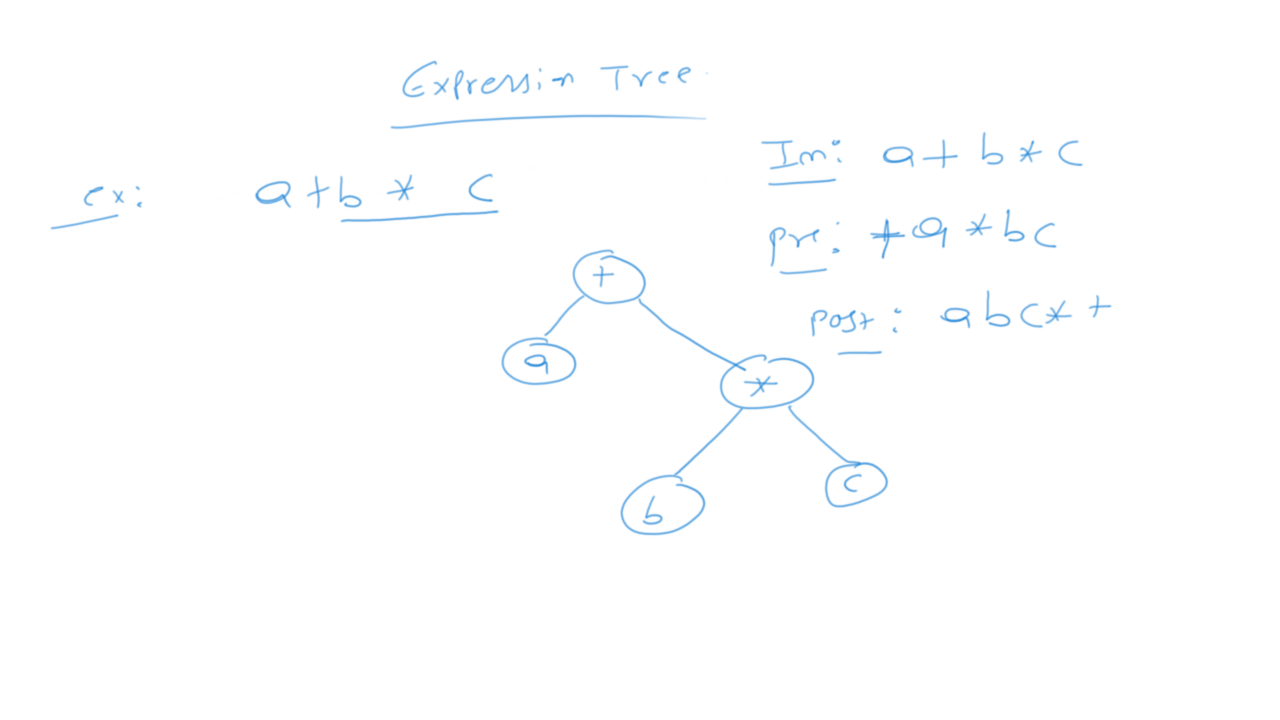 Expression Tree
ex: a+b * c
In: a + b * c
pre: +a *bc
post: abc* +
+
a
*
b
c